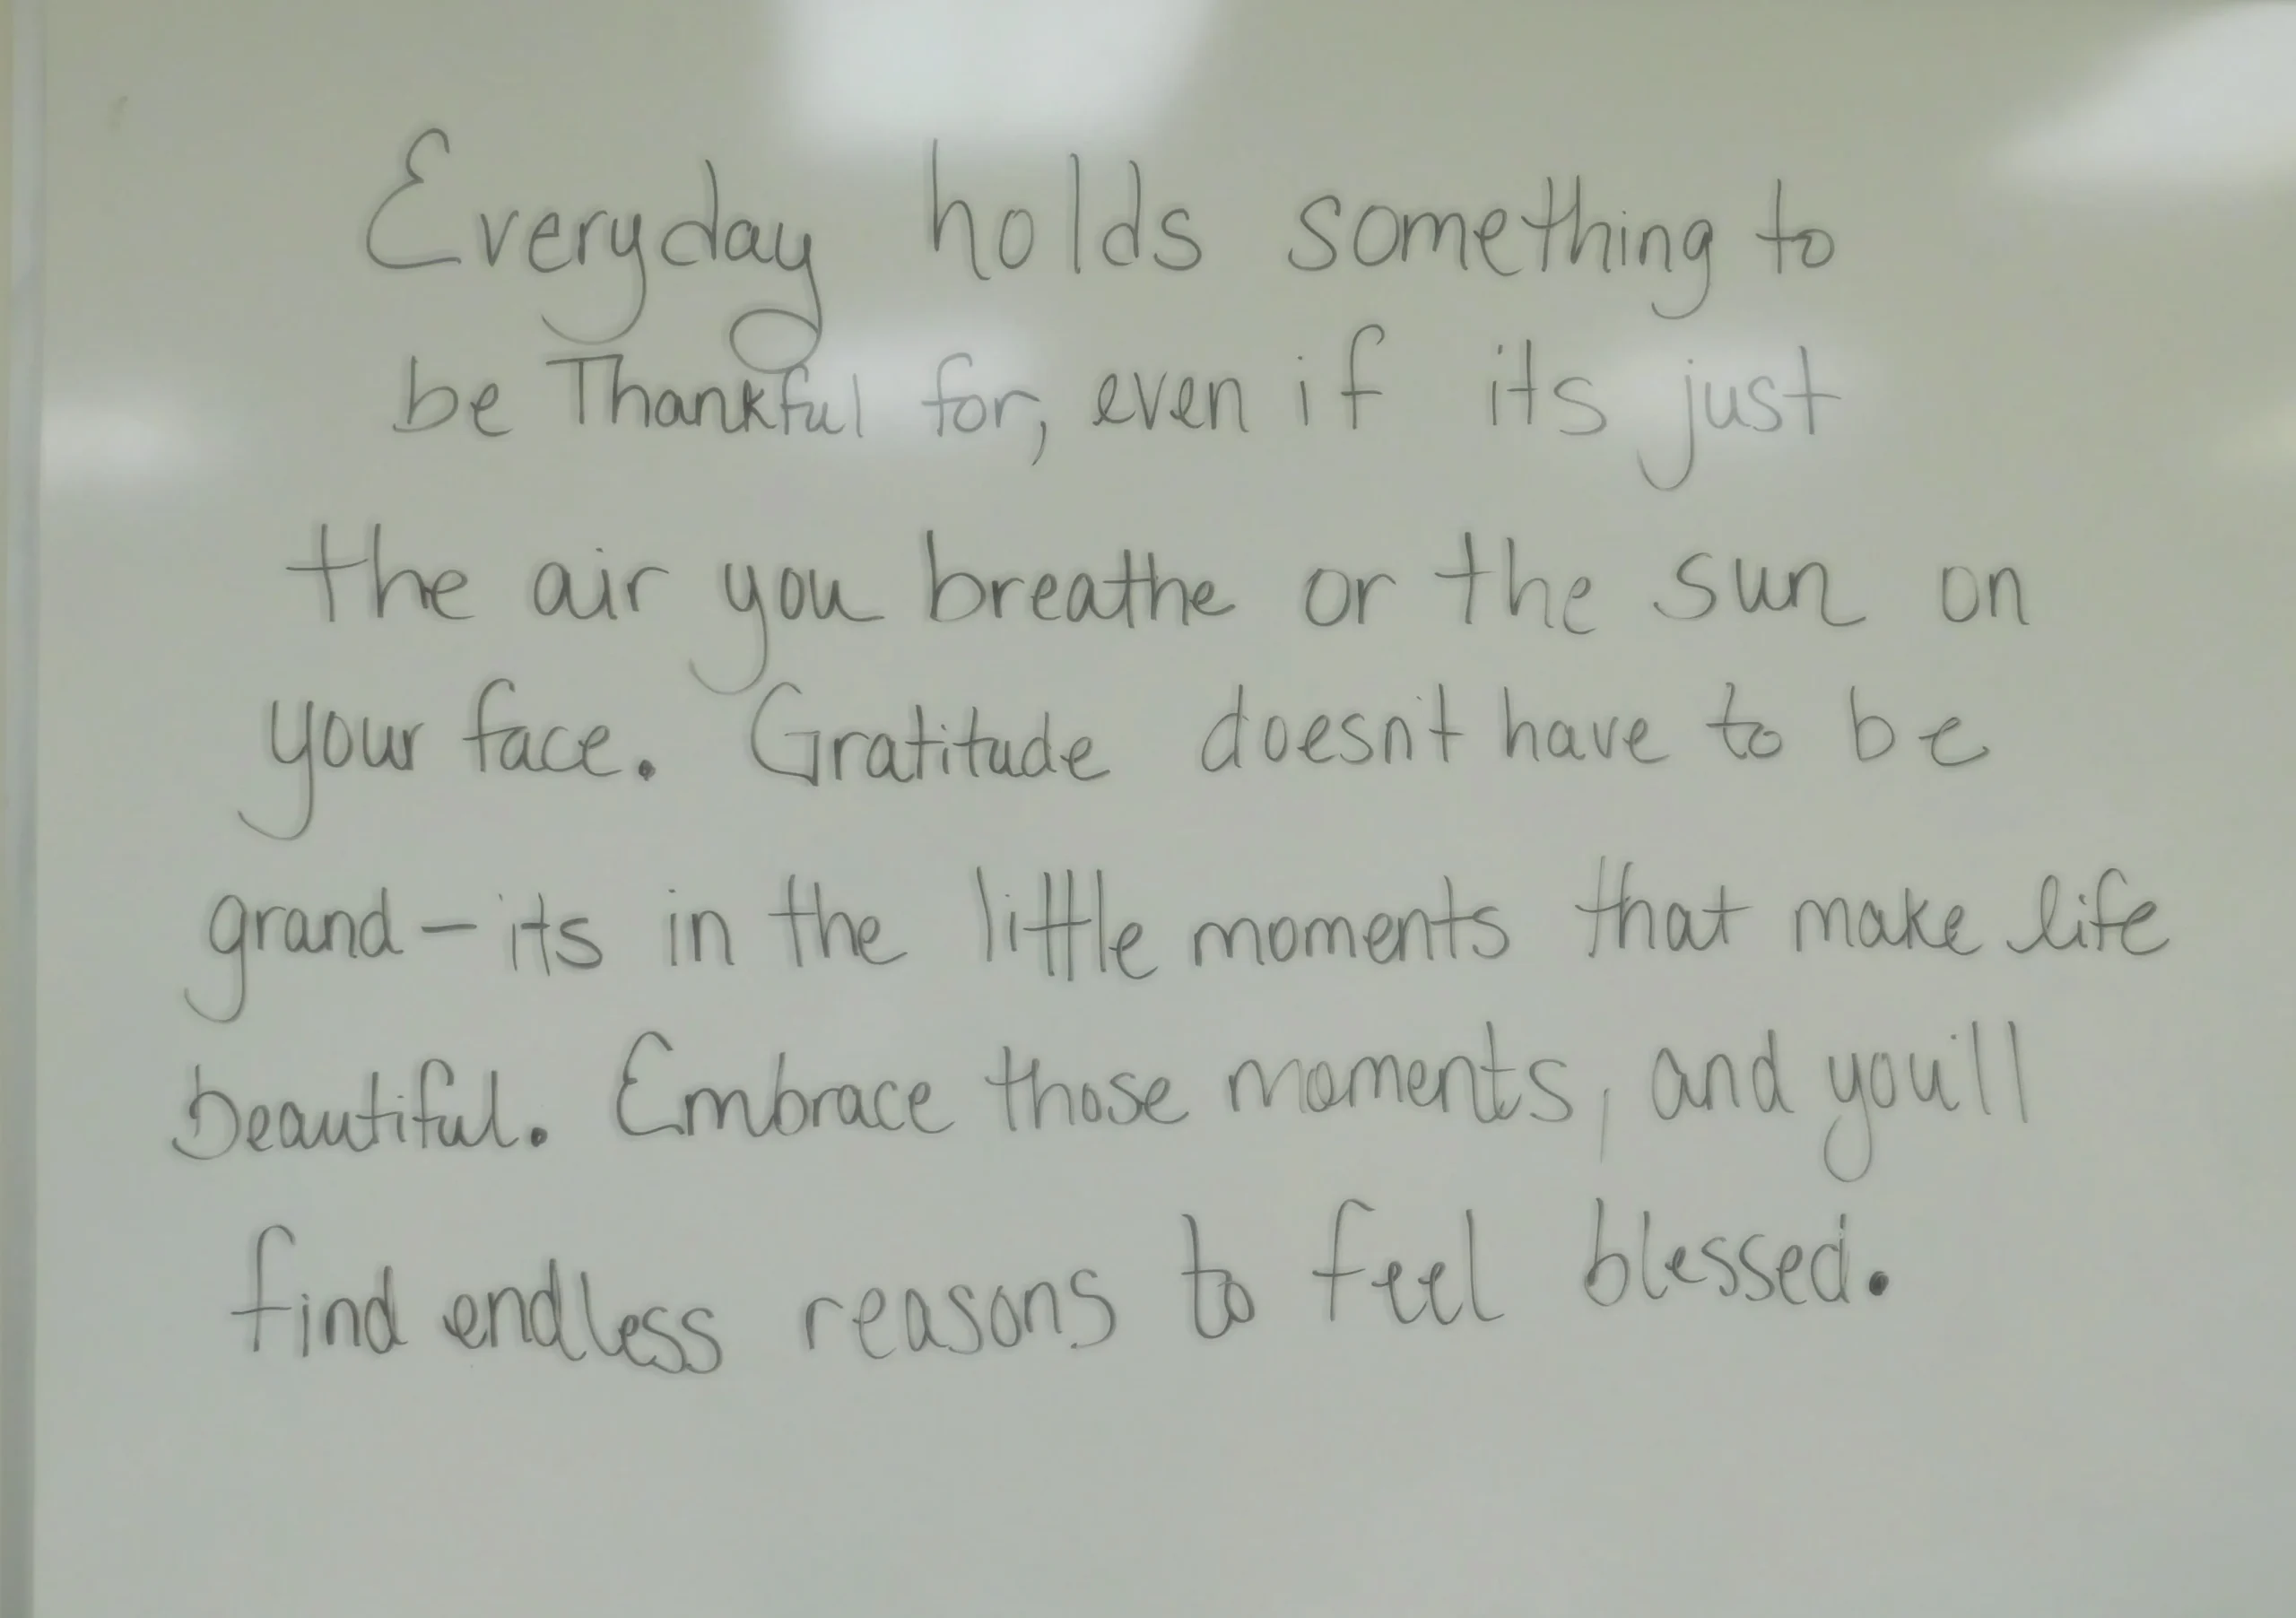 Everyday holds something to
be Thankful for, even if its just
the air you breathe or the sun on
your face. Gratitude doesn't have to be
grand - its in the little moments that make life
beautiful. Embrace those moments, and you'll
find endless reasons to feel blessed.